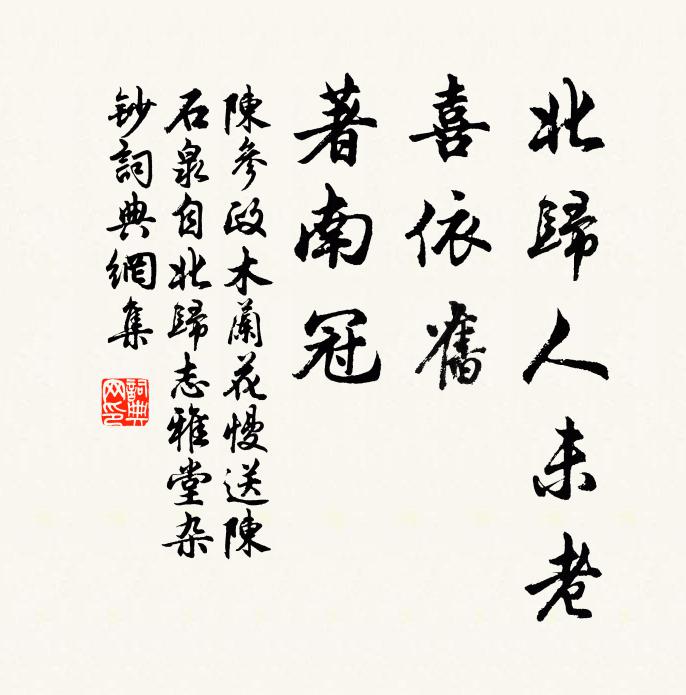 北歸人未老
喜依舊
著南冠
陳參政木蘭花慢送陳
石泉自北歸志雅堂杂
鈔詞典網集
詞典
网印